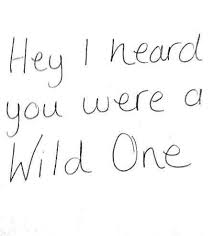 Hey I heard
you were a
Wild One